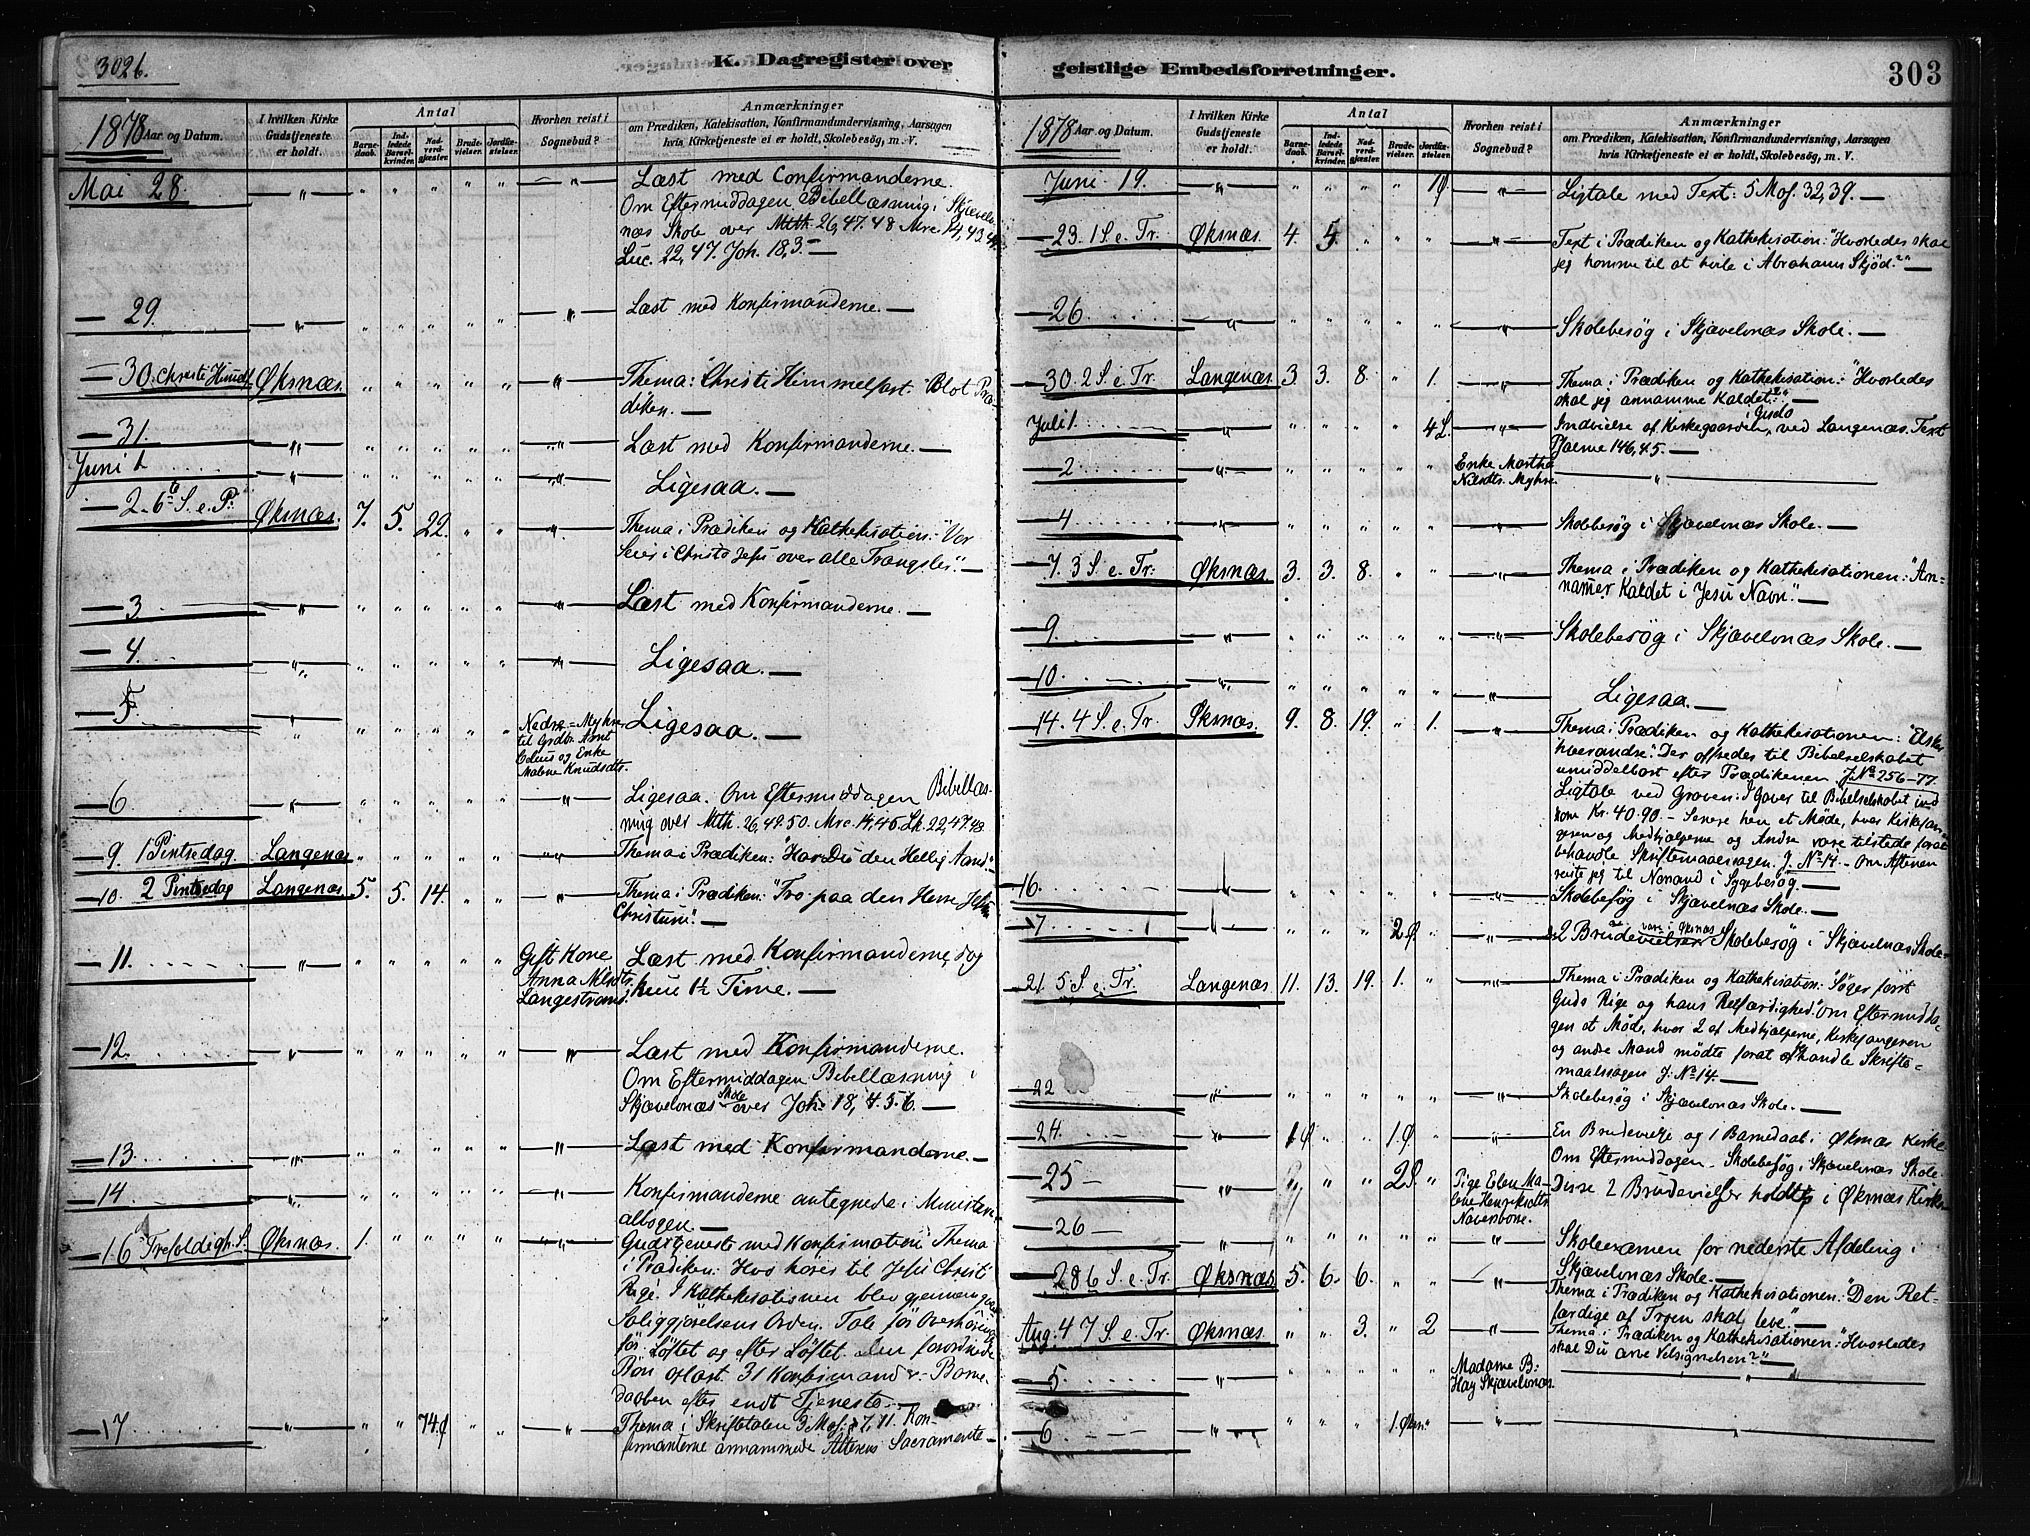 3026.
K. Dagregister over
1878 Aar og Datum.
I hvilken Kirke Gudstjeneste er holdt.
Antal
Barnedaab.
Indledede Barselkvinder.
Nadverdgjester.
Brudevielser.
Jordfæstelser.
Hvorhen reist i Sognebud?
Anmærkninger
om Prædiken, Katekisation, Konfirmandundervisning, Aarsagen
hvis Kirketjeneste ei er holdt, Skolebesøg, m. V.
Mai 28 " " " " " " " Læst med Confirmanderne.
Om Eftermiddagen Bibellæsning i Skjævelv
næs Skole over Mtth. 26, 47. 48 Mrc. 14, 43. 44
Luc. 22, 47. Joh. 18, 3. —
— 29. " " " " " " " Læst med Konfirmanderne. —
— 30. Christi Himmelf Øksnæs. " " " " " " Thema: Christi Himmelfart. Blot Præ-
diken. —
— 31. " " " " " " " Læst med Konfirmanderne. —
Juni 1. " " " " " " " Ligesaa. —
— 2. 6te S. e. P. Øksnæs. 7. 5. 22. " " " Thema i Prædiken og Kathekisation: "Vor
Seier i Christo Jesu over alle Trængsler". —
— 3 " " " " " " " Læst med Konfirmanderne. —
— 4. " " " " " " " Ligesaa. —
— 5 " " " " " " Nedre-Myhre
til Grdbr. Arnt
Odeus og Enke
Malene Knudsdtr. Ligesaa. —
— 6 " " " " " " " Ligesaa. Om Eftermiddagen Bibellæs-
ning over Mtth. 26, 49. 50. Mrc. 14, 45. Lk. 22, 47. 48.
— 9 1 Pintsedag Langenæs " " " " " " Thema i Prædiken: "Har Du den Hellig Aand"
— 10. 2 Pintsedag Langenæs. 5. 5. 14. " " " Thema i Prædiken: "Tro paa den Herre Jesum
Christum". —
— 11. " " " " " " Gift Kone
Anna Nilsdtr.
Langestrand. Læst med Konfirmanderne, dog
kun 1½ Time. —
— 12. " " " " " " " Læst med Konfirmanderne.
Om Eftermiddagen Bibellæsning i
Skjævelvnæs Skole over Joh. 18, 4. 5. 6. —
— 13. " " " " " " " Læst med Konfirmanderne. —
— 14 " " " " " " " Konfirmanderne antegnede i Ministeri-
albogen. —
— 16 Trefoldigh. S. Øksnæs. 1. " " " " " Gudstjeneste med Konfirmation Thema
i Prædiken: Hvo hører til Jesu Christi
Rige. I Kathekisationen blev gjennemgaaet
Saliggjørelsens Orden. Tale før Overhøringen
før Løftet og efter Løftet. Den forordnede
Bøn oplæst. 31 Konfirmander. Barne-
daaben efter endt Tjeneste. —
— 17 " " " 74 Ø " " " Thema i Skriftetalen 3 Mos. 27, 11. Kon-
firmanterne annammede Alterens Sacramente —
geistlige Embedsforretninger.
303
1878 Aar og Datum.
I hvilken Kirke Gudstjeneste er holdt.
Antal
Barnedaab.
Indledede Barselkvinder.
Nadverdgjester.
Brudevielser.
Jordfæstelser.
Hvorhen reist i Sognebud?
Anmærkninger
om Prædiken, Katekisation, Konfirmandundervisning, Aarsagen
hvis Kirketjeneste ei er holdt, Skolebesøg, m. V.
Juni 19. " " " " " 1 Ø " Ligtale med Text: 5 Mos. 32, 39. —
— 23. 1 S. e. Tr. Øksnæs. 4. 5 " " " " Text i Prædiken og Kathekisation: "Hvorledes skal
jeg komme til at hvile i Abrahams Skjød?" —
— 26 " " " " " " " Skolebesøg i Skjævelvnæs Skole. —
— 30. 2 S. e. Tr. Langenæs. 3. 3. 8. " 1. " Thema i Prædiken og Kathekisation: "Hvorledes
skal jeg annamme Kaldet?" —
Juli 1. " " " " " 4 L. " Indvielse af Kirkegaarden ved Langenæs. Text
Psalme 146, 4. 5. —
— 2 " " " " " " Enke Martha
Nilsdtr. Myhre. "
— 4 " " " " " " " Skolebesøg i Skjævelvnæs Skole. —
— 7. 3 S. e. Tr. Øksnæs. 3. 3. 8. " " " Thema i Prædiken og Kathekisationen: "An-
nammer Kaldet i Jesu Navn". —
— 9. " " " " " " " Skolebesøg i Skjævelvnæs Skole. —
— 10. " " " " " " " Ligesaa. —
— 14. 4 S. e. Tr. Øksnæs. 9. 8. 19. " 1. " Thema i Prædiken og Kathekisationen: "Elsker
hverandre". Der ofredes til Bibelselskabet
umiddelbart efter Prædikenen. J. No 256-77.
Ligtale ved Graven. I Gaver til Bibelselskabet ind
kom Kr. 40.90. — Senere hen et Møde, hvor Kirkesan-
geren og Medhjælperne og Andre vare tilstede forat
behandle Skriftemaalssagen. J. No 14. — Om Aftenen
reiste jeg til Norsand i Sygebesøg. —
— 16. " " " " " " " Skolebesøg i Skjævelvnæs Skole. —
— 17 " " " " 2 Ø " " 2 Brudevielser vare i Øksnæs Skolebesøg i Skjævelvnæs Skole.
— 21. 5 S. e. Tr. Langenæs. 11. 13. 19. 1. " " Thema i Prædiken og Kathekisation: "Søger først
Guds Rige og hans Retfærdighed". Om Eftermidda-
gen et Møde, hvor 2 af Medhjælperne, Kirkesangeren
og andre Mænd mødte forat behandle Skrifte-
maalssagen J. No 14. —
— 22 " " " " " " " Skolebesøg i Skjævelvnæs Skole. —
— 24. " 1 Ø " " 1 Ø " " En Brudevielse og 1 Barnedaab i Øksnæs Kirke
Om Eftermiddagen Skolebesøg i Skjævelvnæs Skole.
— 25 — " " " " 2 Ø " Pige Ellen Ma-
lene Henriksdtr.
Naversbone. Disse 2 Brudevielser holdtes i Øksnæs Kirke.
— 26 — " " " " " " " Skoleexamen for nederste Afdeling i
Skjævelvnæs Skole. —
— 28 6 S. e. Tr. Øksnæs. 5. 6. 6. " " " Thema i Prædiken og Kathekisationen: "Den Ret-
færdige af Troen skal leve". —
Aug. 4 7 S. e. Tr. Øksnæs. " " 3. " 2 " Thema i Prædiken og Kathekisationen: "Hvorledes
skal Du arve Velsignelsen?" —
— 5 " " " " " " Madame B.
Hay Skjævelvnæs. "
— 6 " " " " 1. Øksn. " " "